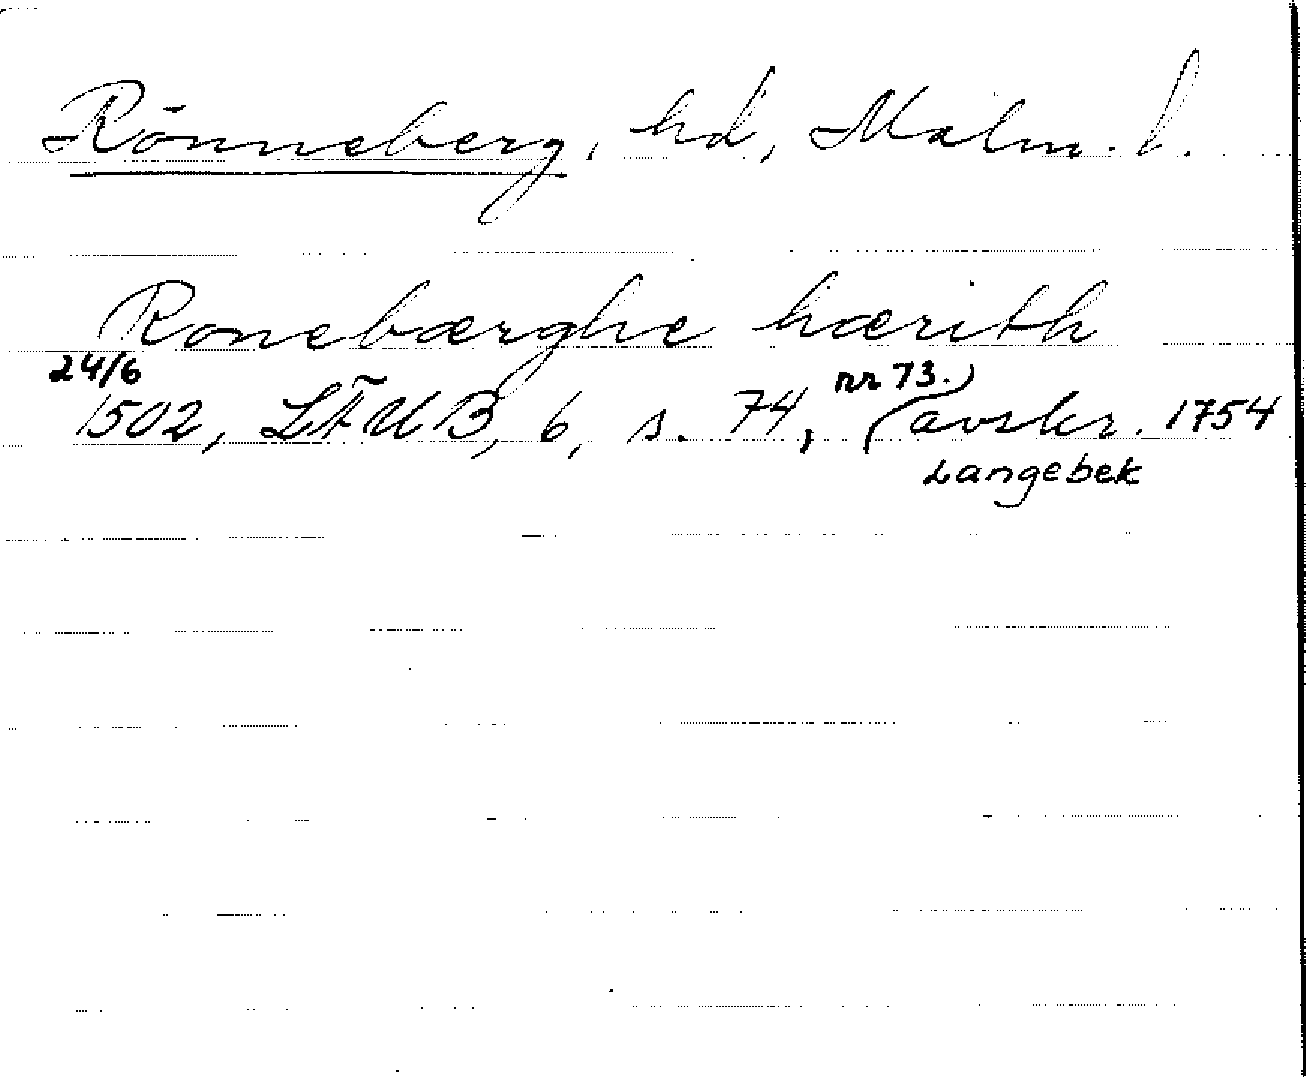 Rönneberg, hd, Malm. l.
Ronebærghe hærith
24/6 nr 73.)
1502, LÄUB, 6, s. 74, (avskr. 1754
Langebek